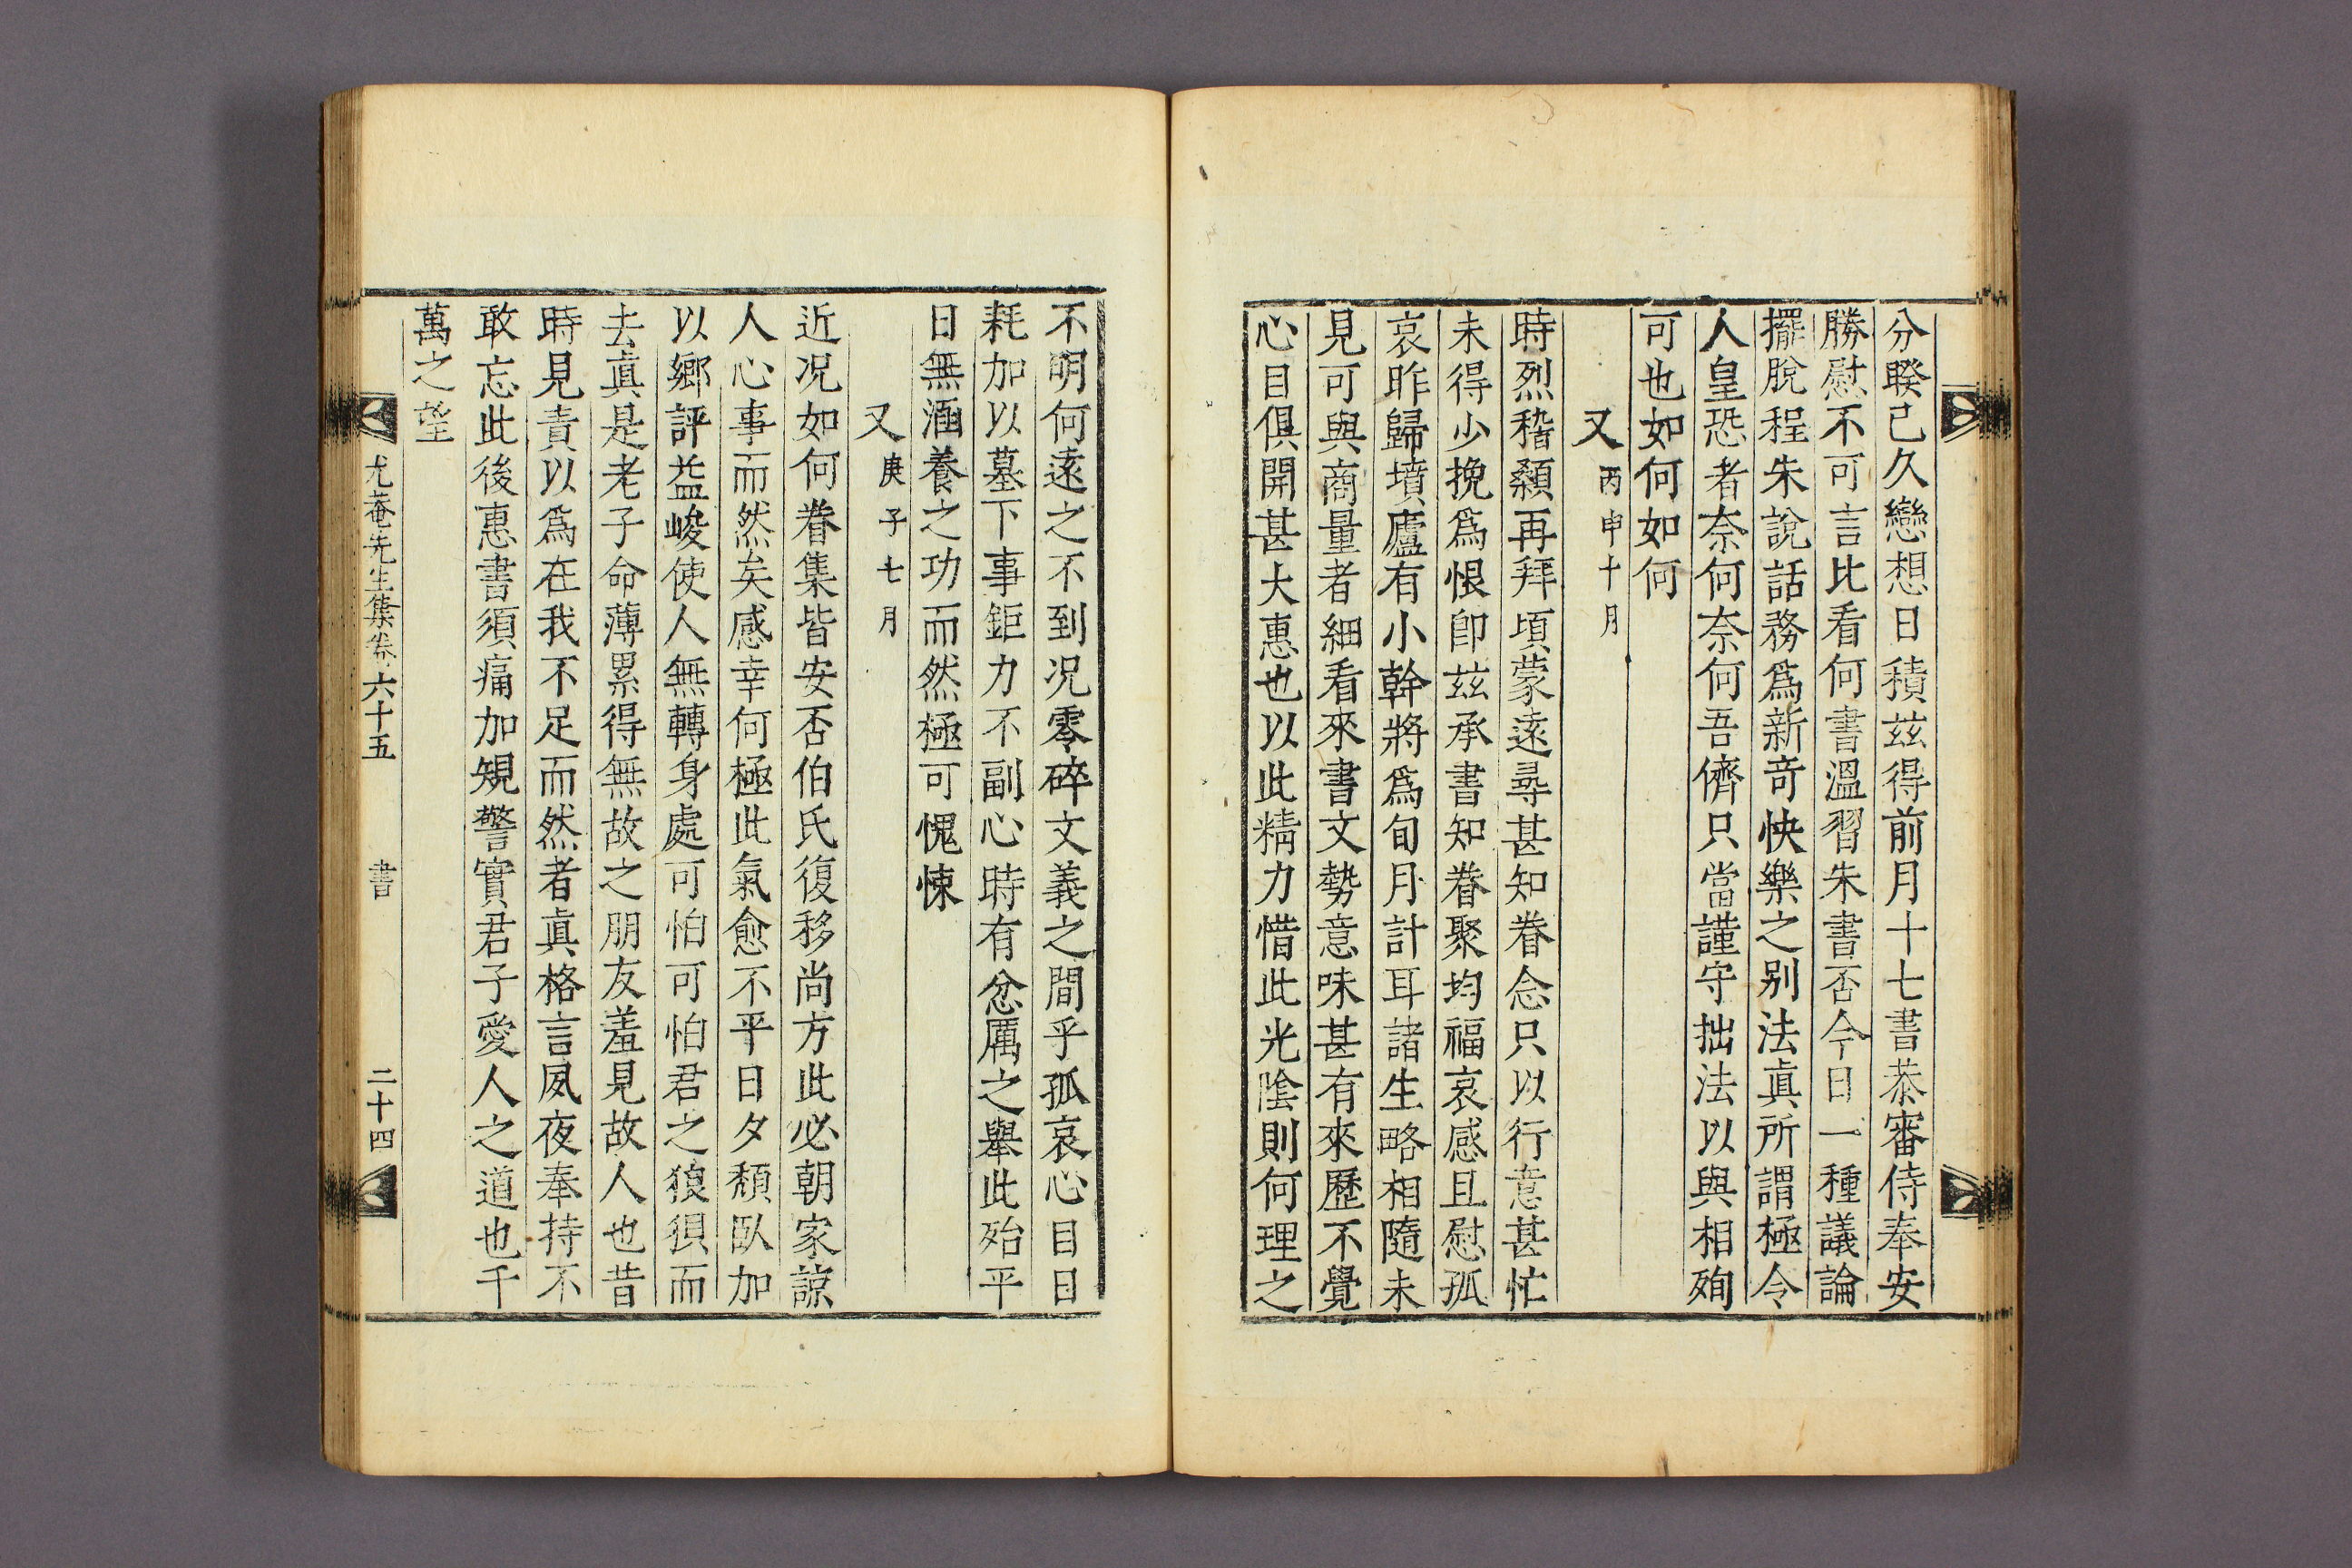 分睽已久戀想日積玆得前月十七書恭審侍奉安
勝慰不可言比看何書溫習朱書否今日一種議論
擺脫程朱說話務爲新奇快樂之別法眞所謂極令
人皇恐者奈何奈何吾儕只當謹守拙法以與相殉
可也如何如何
又丙申十月
時烈稽顙再拜頃蒙遠尋甚知眷念只以行意甚忙
未得少挽爲恨卽玆承書知眷聚均福哀感且慰孤
哀昨歸墳廬有小幹將爲旬月計耳諸生略相隨未
見可與商量者細看來書文勢意味甚有來歷不覺
心目俱開甚大惠也以此精力惜此光陰則何理之
不明何遠之不到况零碎文義之間乎孤哀心目日
耗加以墓下事鉅力不副心時有忿厲之舉此殆平
日無涵養之功而然極可愧悚
又庚子七月
近况如何眷集皆安否伯氏復移尚方此必朝家諒
人心事而然矣感幸何極此氣愈不平日夕頹臥加
以鄉評益峻使人無轉身處可怕可怕君之狼狽而
去眞是老子命薄累得無故之朋友羞見故人也昔
時見責以爲在我不足而然者眞格言夙夜奉持不
敢忘此後惠書須痛加規警實君子愛人之道也千
萬之望
尤菴先生集卷六十五 書 二十四